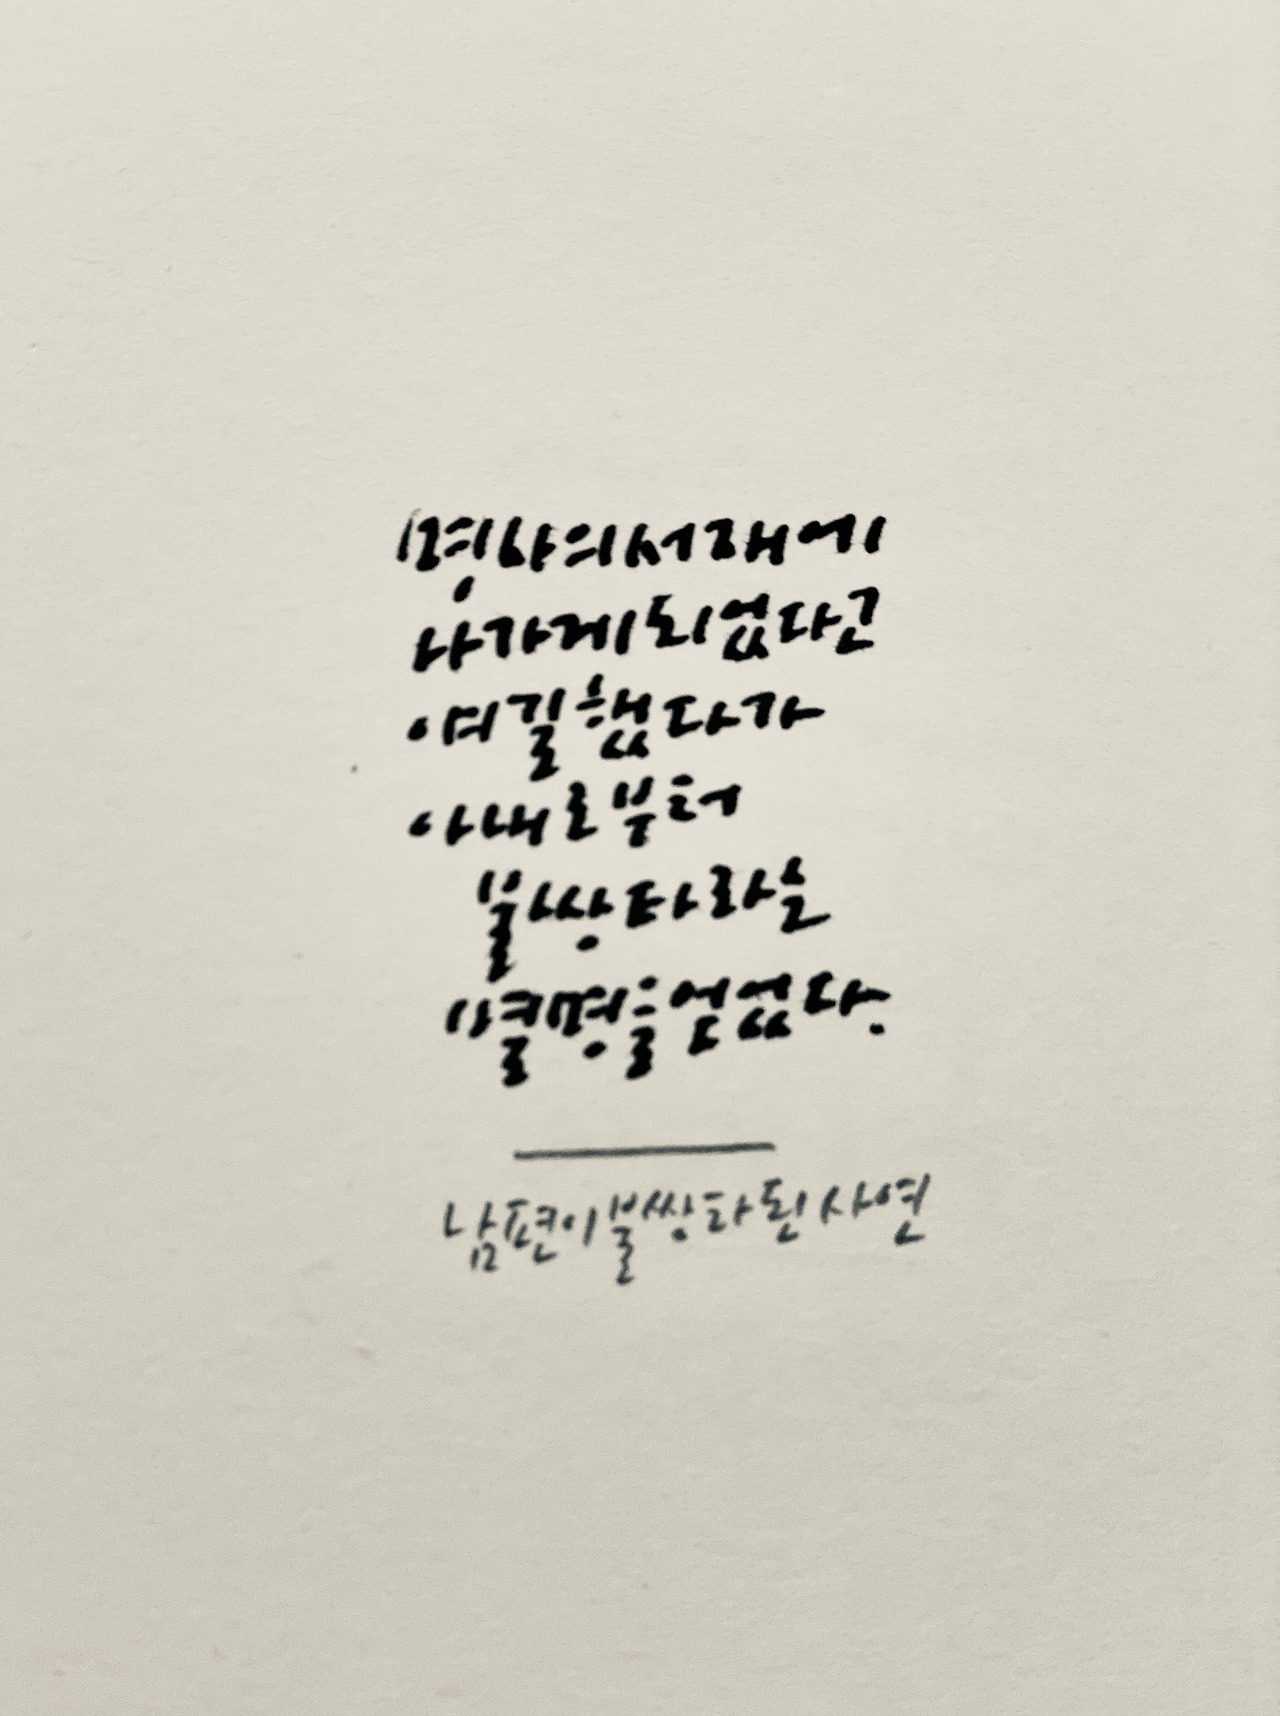 명사의서재에
나가게되었다고
얘길했다가
아내로부터
불쌍타라는
별명을얻었다.
남편이불쌍타된사연